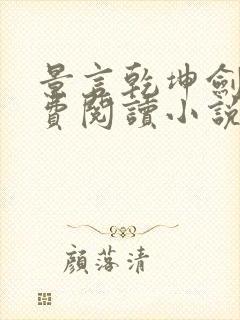 景言乾坤劍
費閱讀小說
顏落清